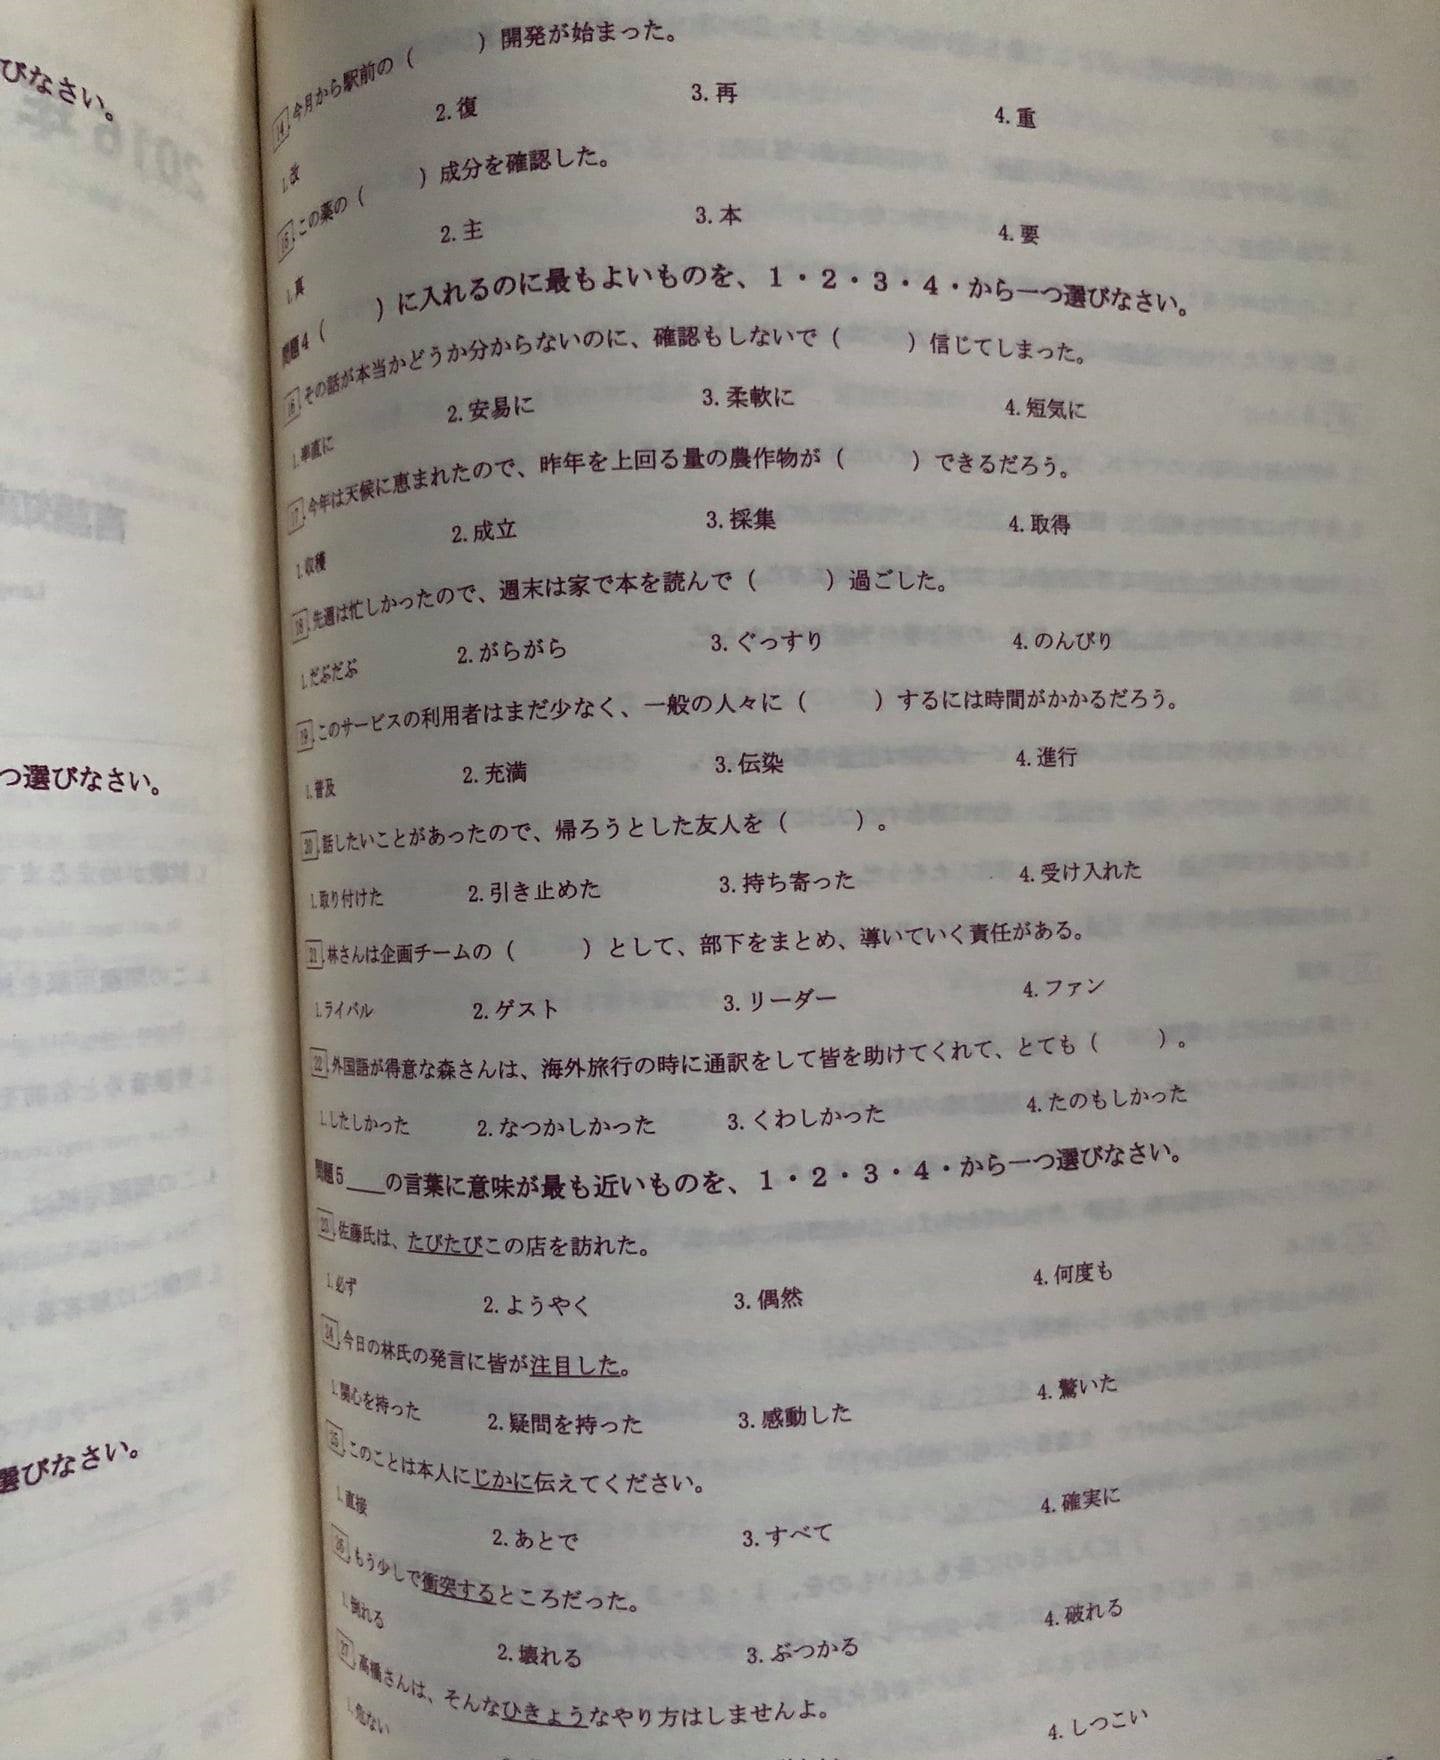 びなさい。
つ選びなさい。
選びなさい。
2016年
14 今月から駅前の（　　）開発が始まった。
1.改 2.復 3.再 4.重
15 この薬の（　　）成分を確認した。
1.真 2.主 3.本 4.要
問題4（　　）に入れるのに最もよいものを、1・2・3・4・から一つ選びなさい。
16 その話が本当かどうか分からないのに、確認もしないで（　　）信じてしまった。
1.率直に 2.安易に 3.柔軟に 4.短気に
17 今年は天候に恵まれたので、昨年を上回る量の農作物が（　　）できるだろう。
1.収穫 2.成立 3.採集 4.取得
18 先週は忙しかったので、週末は家で本を読んで（　　）過ごした。
1.だぶだぶ 2.がらがら 3.ぐっすり 4.のんびり
19 このサービスの利用者はまだ少なく、一般の人々に（　　）するには時間がかかるだろう。
1.普及 2.充満 3.伝染 4.進行
20 話したいことがあったので、帰ろうとした友人を（　　）。
1.取り付けた 2.引き止めた 3.持ち寄った 4.受け入れた
21 林さんは企画チームの（　　）として、部下をまとめ、導いていく責任がある。
1.ライバル 2.ゲスト 3.リーダー 4.ファン
22 外国語が得意な森さんは、海外旅行の時に通訳をして皆を助けてくれて、とても（　　）。
1.したしかった 2.なつかしかった 3.くわしかった 4.たのもしかった
問題5＿＿の言葉に意味が最も近いものを、1・2・3・4・から一つ選びなさい。
23 佐藤氏は、たびたびこの店を訪れた。
1.必ず 2.ようやく 3.偶然 4.何度も
24 今日の林氏の発言に皆が注目した。
1.関心を持った 2.疑問を持った 3.感動した 4.驚いた
25 このことは本人にじかに伝えてください。
1.直接 2.あとで 3.すべて 4.確実に
26 もう少しで衝突するところだった。
1.倒れる 2.壊れる 3.ぶつかる 4.破れる
27 高橋さんは、そんなひきょうなやり方はしませんよ。
1.危ない 4.しつこい